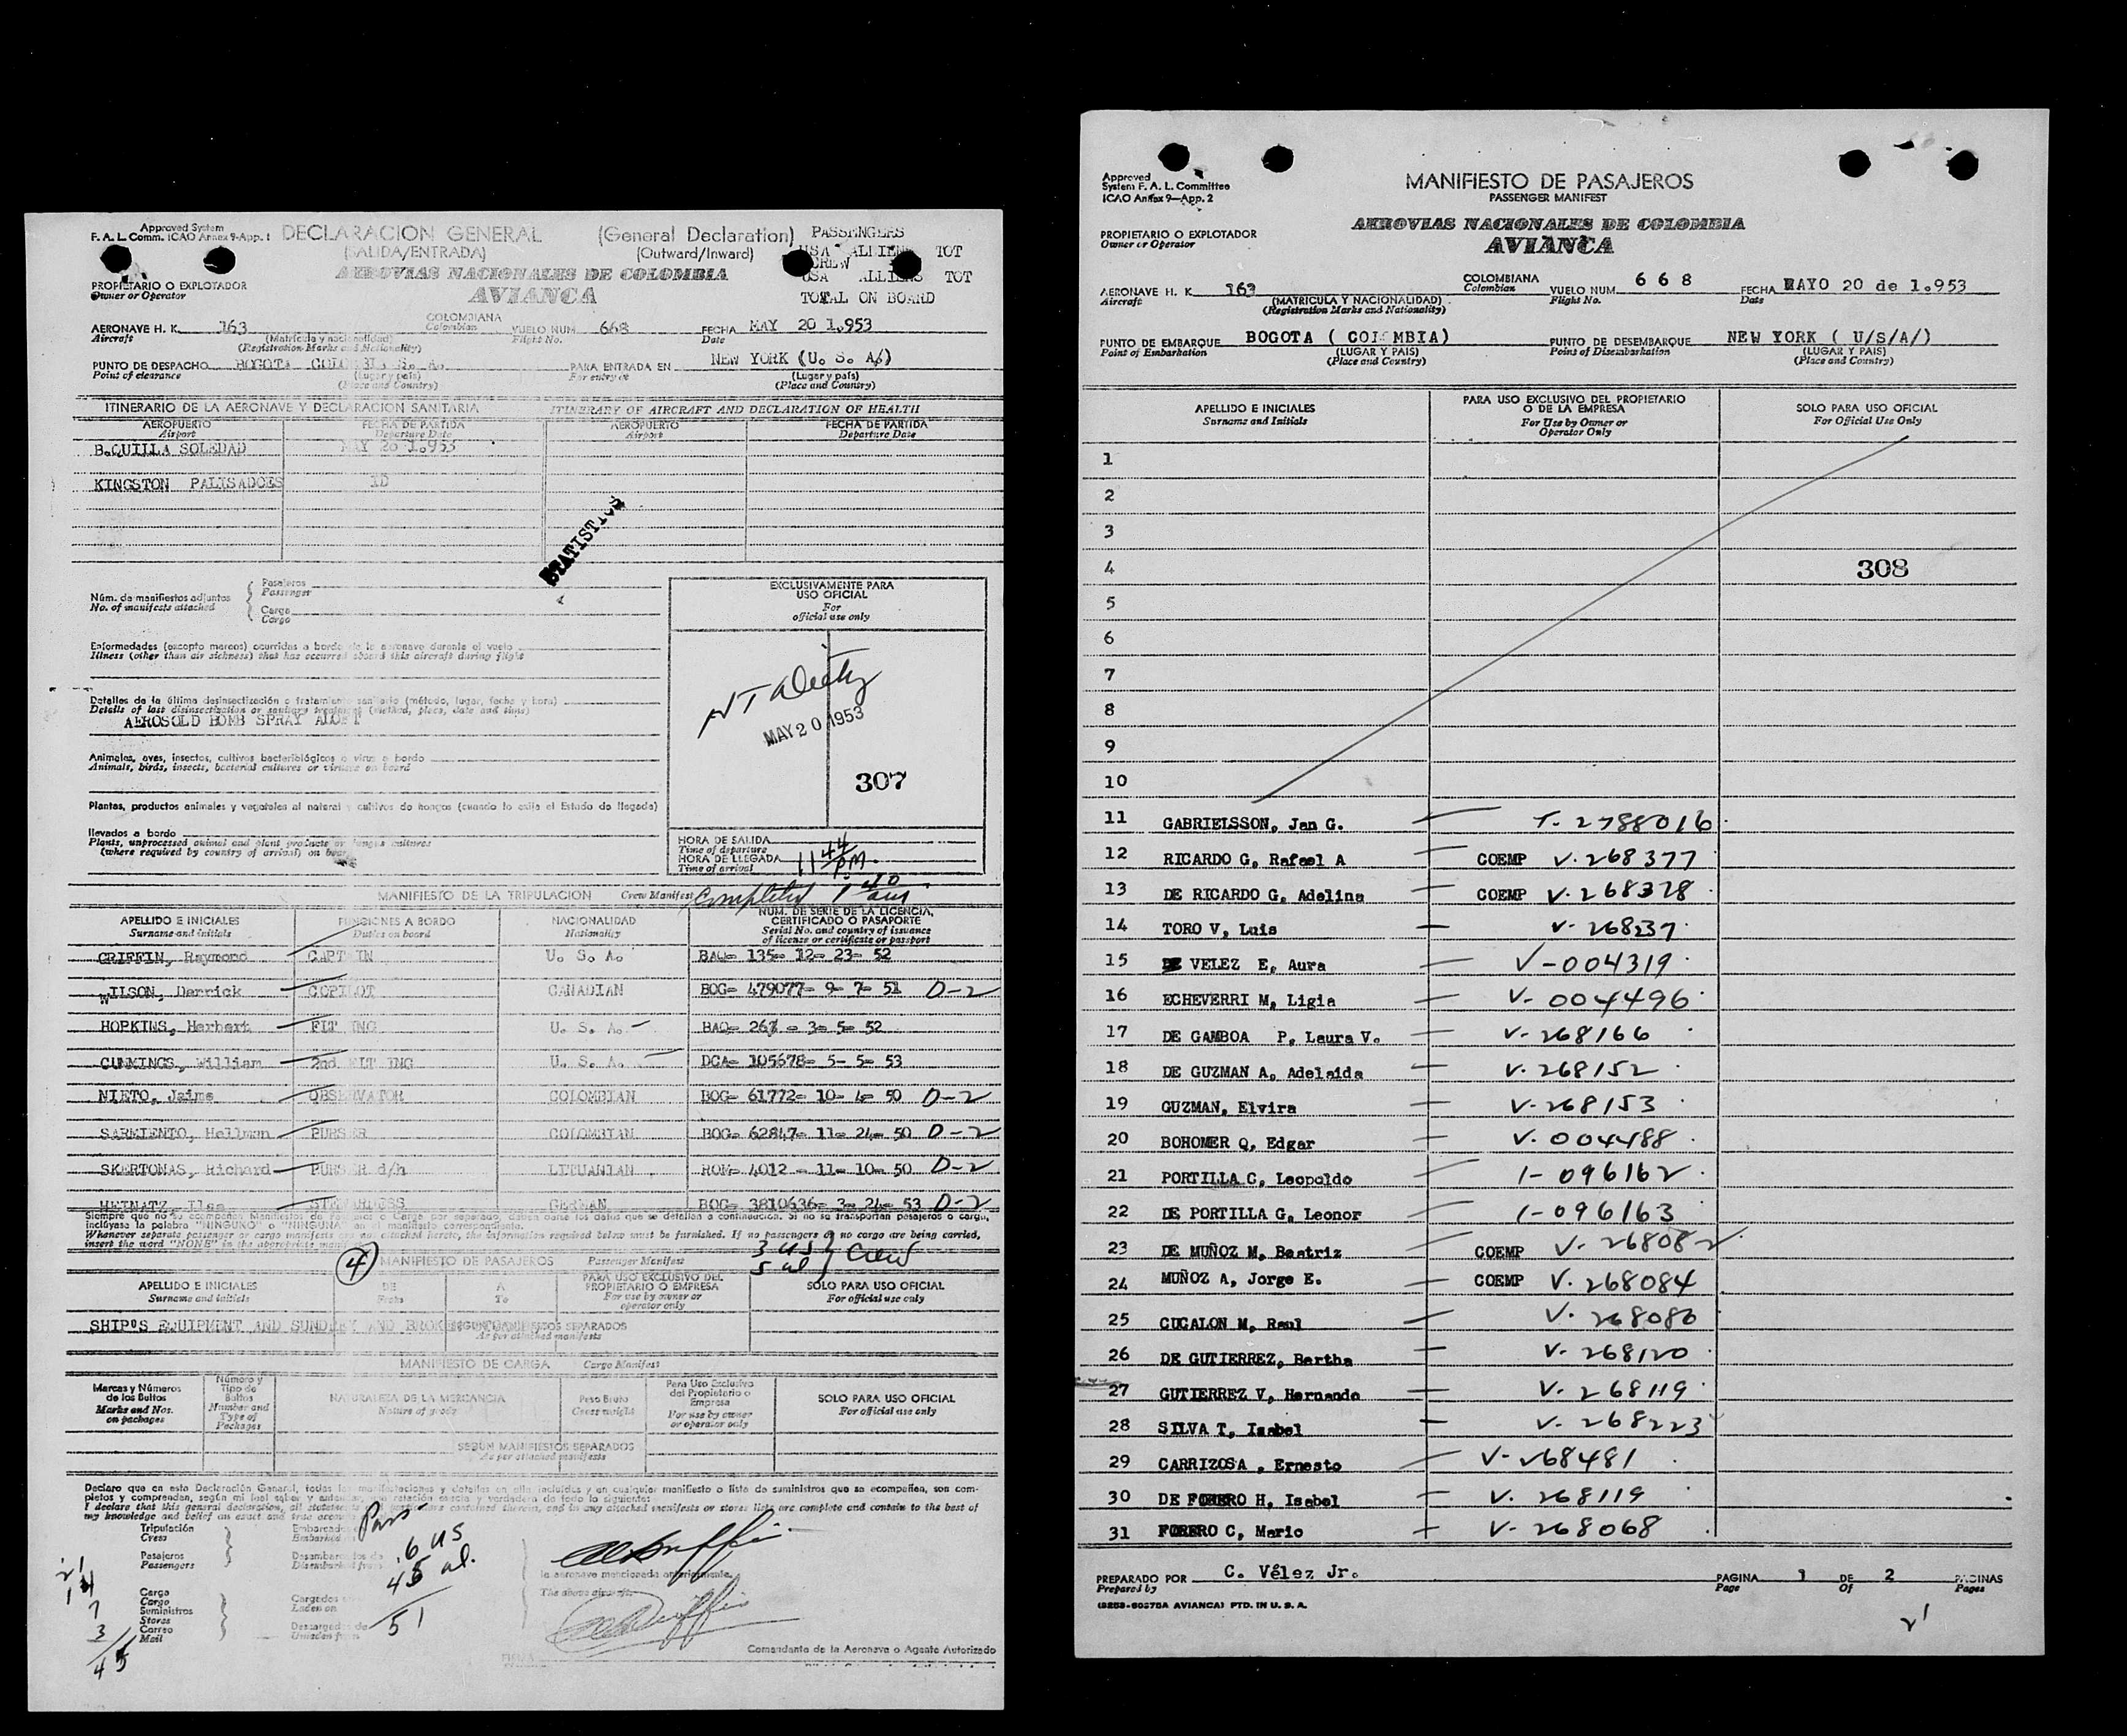 Approved System
F. A. L. Comm. ICAO Annex 9-App. 1
DECLARACION GENERAL (General Declaration)
(SALIDA/ENTRADA) (Outward/Inward)
PASSENGERS
USA ALLIENS TOT
CREW
USA ALLIENS TOT
TOTAL ON BOARD
AEROVIAS NACIONALES DE COLOMBIA
AVIANCA
PROPIETARIO O EXPLOTADOR
Owner or Operator
AERONAVE H. K. 163 COLOMBIANA VUELO NUM. 668 FECHA MAY 20 1.953
Aircraft Colombian Flight No. Date
(Matrícula y nacionalidad)
(Registration Marks and Nationality)
PUNTO DE DESPACHO BOGOTA S. A. PARA ENTRADA EN NEW YORK (U. S. A/)
Point of clearance (Lugar y país) For entry at (Lugar y país)
(Place and Country) (Place and Country)
ITINERARIO DE LA AERONAVE Y DECLARACION SANITARIA ITINERARY OF AIRCRAFT AND DECLARATION OF HEALTH
AEROPUERTO FECHA DE PARTIDA AEROPUERTO FECHA DE PARTIDA
Airport Departure Date Airport Departure Date
B.QUILLA SOLEDAD MAY 20 1.953
KINGSTON PALISADOES ID
STATISTICS
Núm. de manifiestos adjuntos
No. of manifests attached
Pasajeros
Passenger
Carga
Cargo
EXCLUSIVAMENTE PARA
USO OFICIAL
For
official use only
Enfermedades (excepto mareos) ocurridas a bordo de la aeronave durante el vuelo
Illness (other than air sickness) that has occurred aboard this aircraft during flight
Detalles de la última desinsectización o tratamiento sanitario (método, lugar, fecha y hora)
Details of last disinsectization or sanitary treatment (method, place, date and time)
AEROSOLD BOMB SPRAY
MAY 20 1953
307
Animales, aves, insectos, cultivos bacteriológicos o virus a bordo
Animals, birds, insects, bacterial cultures or viruses on board
Plantas, productos animales y vegetales al natural y cultivos de hongos (cuando lo exija el Estado de llegada)
llevados a bordo
Plants, unprocessed animal and plant products or fungus cultures
(where required by country of arrival) on board
HORA DE SALIDA
Time of departure
HORA DE LLEGADA 11 44 PM.
Time of arrival
MANIFIESTO DE LA TRIPULACION Crew Manifest Completed 1 40 am
APELLIDO E INICIALES FUNCIONES A BORDO NACIONALIDAD NUM. DE SERIE DE LA LICENCIA, CERTIFICADO O PASAPORTE
Surname and initials Duties on board Nationality Serial No. and country of issuance of license or certificate or passport
GRIFFIN, Raymond CAPTAIN U. S. A. BAQ- 135- 12- 23- 52
WILSON, Derrick COPILOT CANADIAN BOG- 479077- 9- 7- 51 D-2
HOPKINS, Herbert FLT ENG U. S. A. BAQ- 267 - 3- 5- 52
CUMMINGS, William 2nd FLT ENG U. S. A. DCA- 105678- 5- 5- 53
NIETO, Jaime OBSERVATOR COLOMBIAN BOG- 61772- 10- 4- 50 D-2
SARMIENTO, Hellman PURSER COLOMBIAN BOG- 62847- 11- 24- 50 D-2
SKERTONAS, Richard PURSER d/h LITUANIAN ROM- 4012 - 11- 10- 50 D-2
HEINATZ, Ilse STEWARDESS GERMAN BOG- 3810636- 3- 24- 53 D-2
Whenever separate passenger or cargo manifests are not attached hereto, the information required below must be furnished. If no passengers or no cargo are being carried,
insert the word "NONE" in the appropriate manifest
3 US
5 al } Crew
4 MANIFIESTO DE PASAJEROS Passenger Manifest
APELLIDO E INICIALES DE A PARA USO EXCLUSIVO DEL PROPIETARIO O EMPRESA SOLO PARA USO OFICIAL
Surname and initials To For use by owner or operator only For official use only
SHIP'S EQUIPMENT AND SUNDRY AND SEGUN MANIFIESTOS SEPARADOS
As per attached manifests
MANIFIESTO DE CARGA Cargo Manifest
Marcas y Números de los Bultos Número y Tipo de Bultos NATURALEZA DE LA MERCANCIA Peso Bruto Para Uso Exclusivo del Propietario o Empresa SOLO PARA USO OFICIAL
Marks and Nos. on packages Number and Type of Packages Nature of goods Gross weight For use by owner or operator only For official use only
SEGUN MANIFIESTOS SEPARADOS
As per attached manifests
my knowledge and belief an exact and true account
Tripulación
Crew
Pasajeros
Passengers
Carga
Cargo
Suministros
Stores
Correo
Mail
Pass
6 US
45 al.
51
21
14
7
3
45
la aeronave mencionada anteriormente.
The above aircraft.
Comandante de la Aeronave o Agente Autorizado
Approved
System F. A. L. Committee
ICAO Annex 9—App. 2
MANIFIESTO DE PASAJEROS
PASSENGER MANIFEST
AEROVIAS NACIONALES DE COLOMBIA
AVIANCA
PROPIETARIO O EXPLOTADOR
Owner or Operator
AERONAVE H. K. 163 COLOMBIANA VUELO NUM. 6 6 8 FECHA MAYO 20 de 1.953
Aircraft (MATRICULA Y NACIONALIDAD) Colombian Flight No. Date
(Registration Marks and Nationality)
PUNTO DE EMBARQUE BOGOTA ( COLOMBIA) PUNTO DE DESEMBARQUE NEW YORK ( U/S/A/)
Point of Embarkation (LUGAR Y PAIS) Point of Disembarkation (LUGAR Y PAIS)
(Place and Country) (Place and Country)
APELLIDO E INICIALES PARA USO EXCLUSIVO DEL PROPIETARIO O DE LA EMPRESA SOLO PARA USO OFICIAL
Surname and Initials For Use by Owner or Operator Only For Official Use Only
1
2
3
4 308
5
6
7
8
9
10
11 GABRIELSSON, Jan G. T-2788016
12 RICARDO G, Rafael A COEMP V-268377
13 DE RICARDO G, Adelina COEMP V-268378
14 TORO V, Luis V-268237
15 VELEZ E, Aura V-004319
16 ECHEVERRI M, Ligia V-004496
17 DE GAMBOA P, Laura V. V-268166
18 DE GUZMAN A, Adelaida V-268152
19 GUZMAN, Elvira V-268153
20 BOHOMER Q, Edgar V-004488
21 PORTILLA C, Leopoldo 1-096162
22 DE PORTILLA G, Leonor 1-096163
23 DE MUÑOZ M, Beatriz COEMP V-268082
24 MUÑOZ A, Jorge E. COEMP V-268084
25 CUCALON M, Raul V-268080
26 DE GUTIERREZ, Bertha V-268120
27 GUTIERREZ V, Hernando V-268119
28 SILVA T, Isabel V-268223
29 CARRIZOSA , Ernesto V-268481
30 DE FORERO H, Isabel V-268119
31 FORERO C, Mario V-268068
PREPARADO POR C. Vélez Jr. PAGINA 1 DE 2 PAGINAS
Prepared by Page Of Pages
(8258-60375A AVIANCA) PTD. IN U. S. A.
21